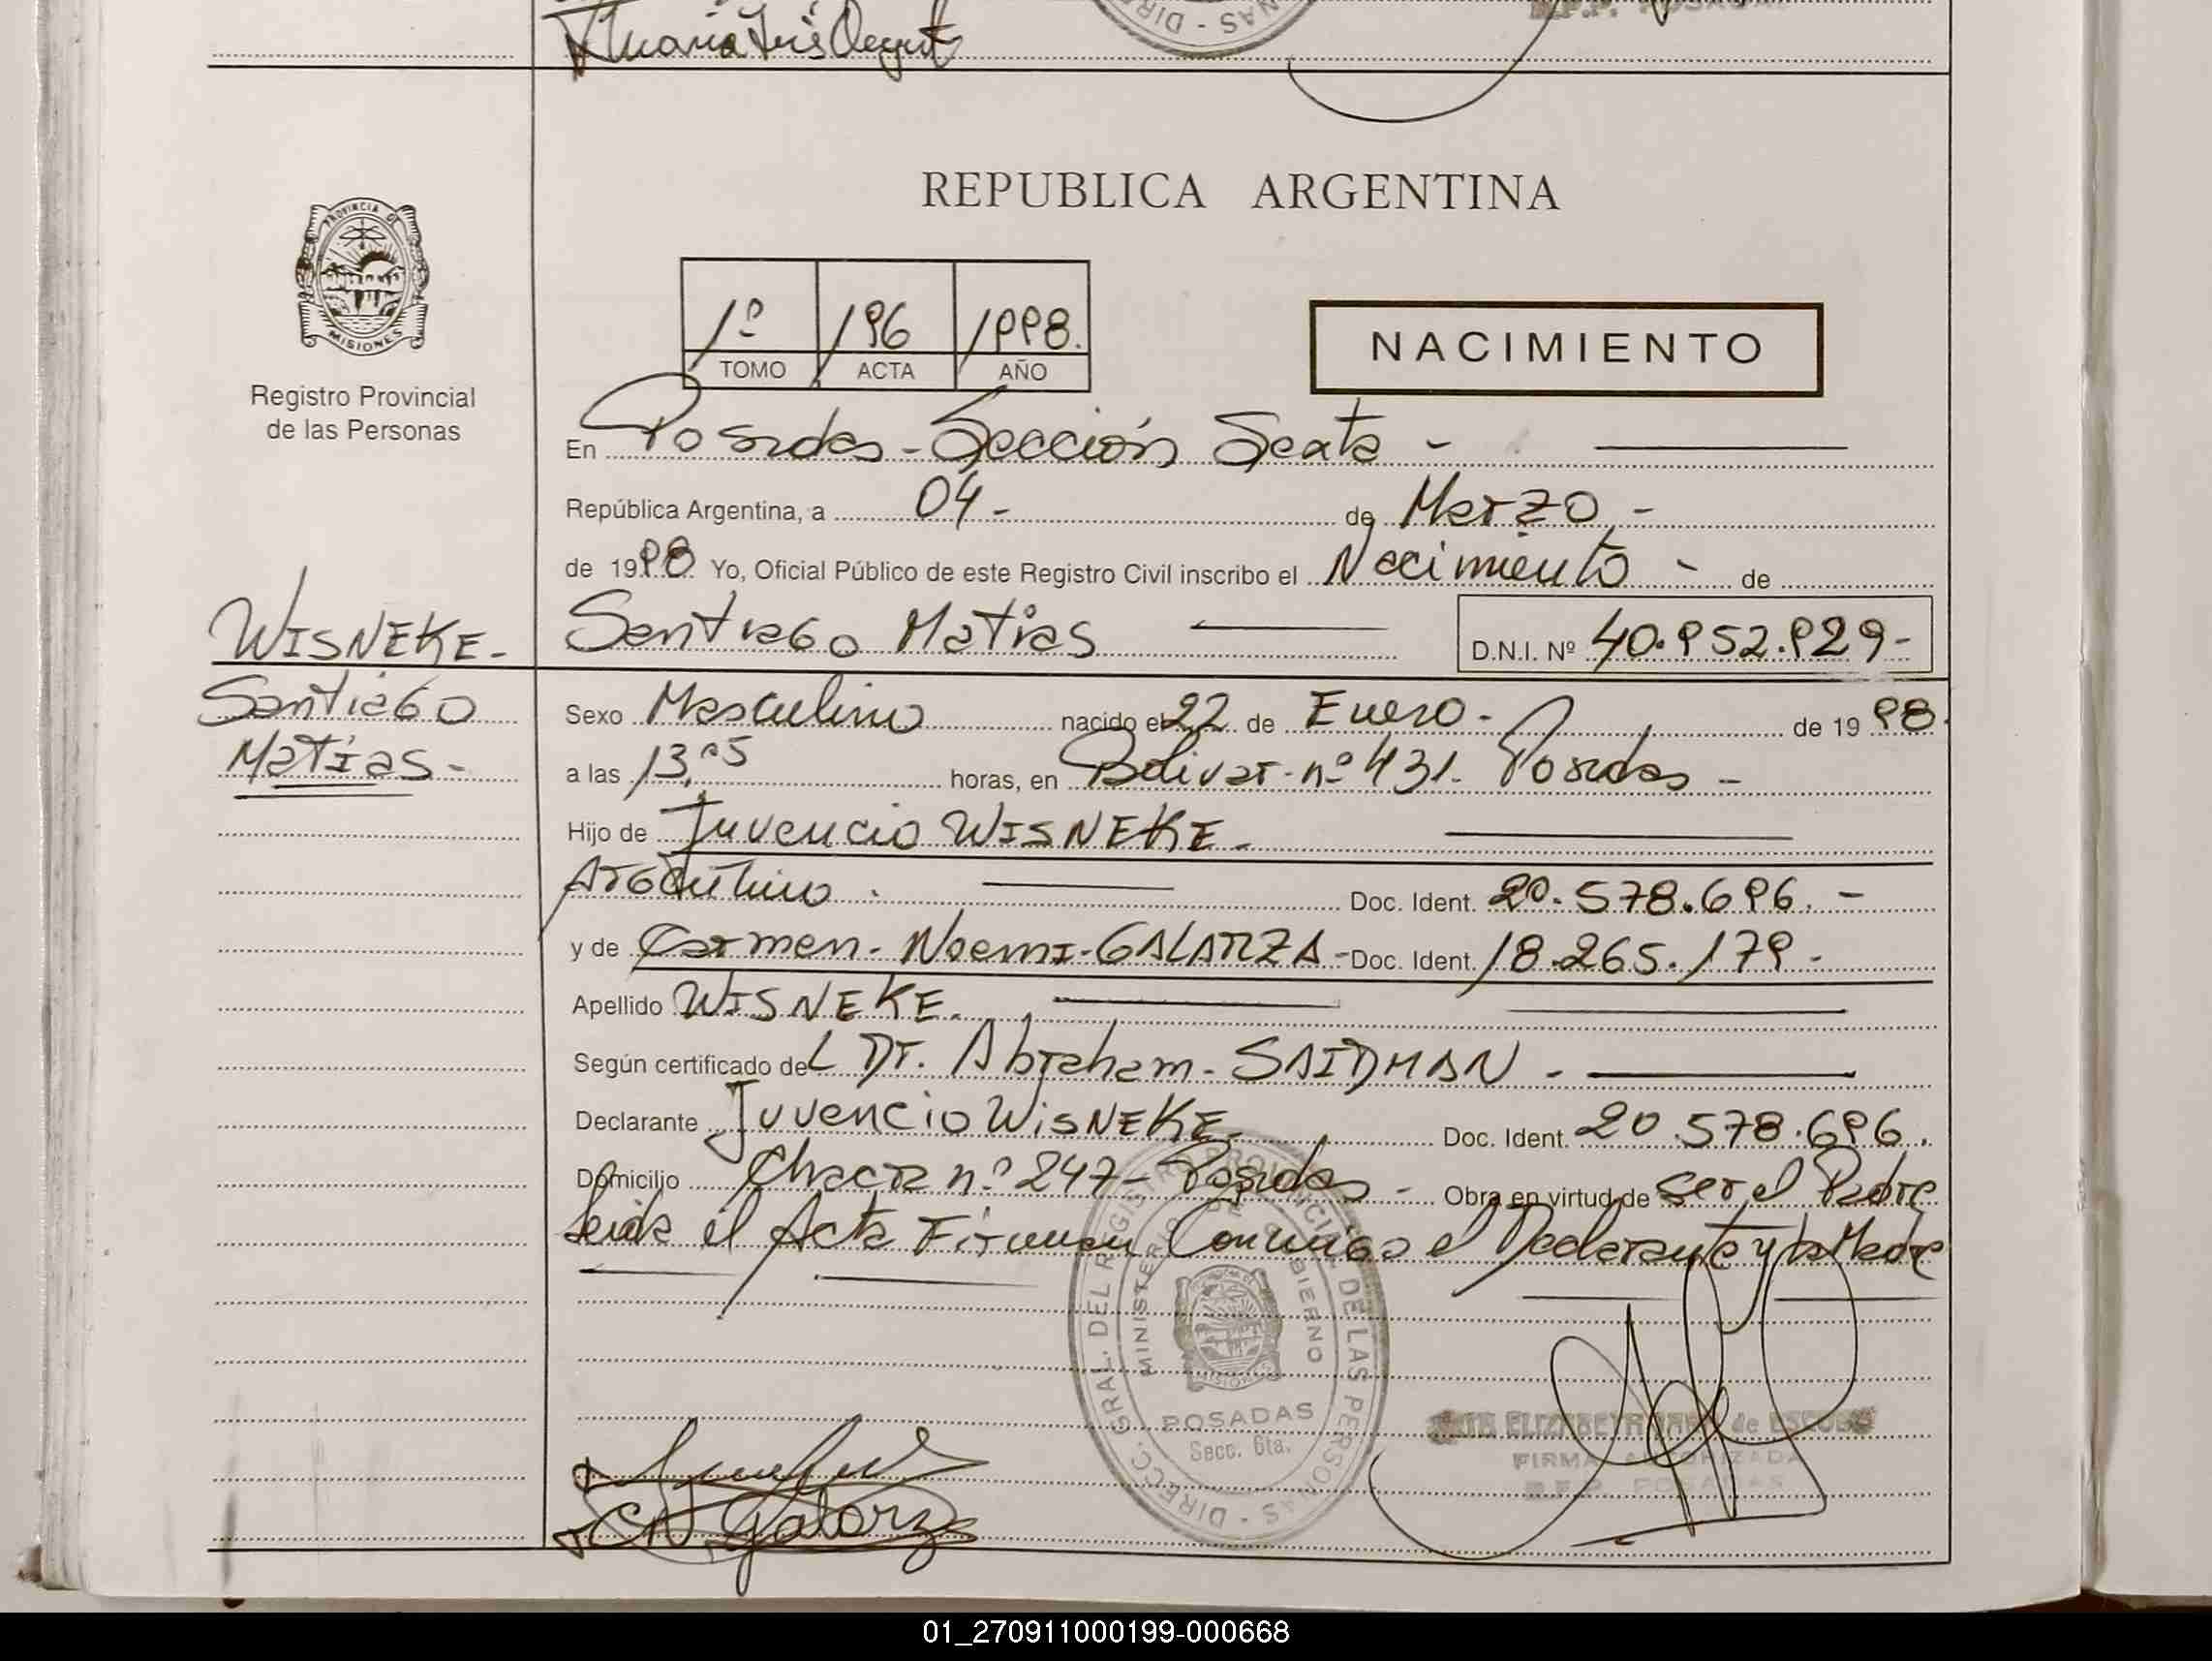 REPUBLICA ARGENTINA
PROVINCIA DE
MISIONES
Registro Provincial
de las Personas
1º 196 1998.
TOMO ACTA AÑO
NACIMIENTO
En Posadas - Sección Sexta -
República Argentina, a 04 - de Marzo -
de 1998 Yo, Oficial Público de este Registro Civil inscribo el Nacimiento - de
Santiago Matias D.N.I. Nº 40.952.929-
WISNEKE -
Santiago
Matías -
Sexo Masculino nacido el 22 de Enero - de 1998.
a las 13,05 horas, en Bolivar - nº 431 - Posadas -
Hijo de Juvencio WISNEKE -
Argentino . Doc. Ident. 20.578.696. -
y de Carmen - Noemi - GALARZA - Doc. Ident. 18.265.179 -
Apellido WISNEKE.
Según certificado del Dr. Abraham - SAIDMAN -
Declarante Juvencio WisNEKE Doc. Ident. 20.578.696.
Domicilio Chacra nº 247 - Posadas - Obra en virtud de ser el Padre
Leida el Acta Firman Conmigo el Declarante y la Madre
DIRECC. GRAL. DEL REGISTRO PROVINCIAL DE LAS PERSONAS -
MINISTERIO DE GOBIERNO
MISIONES
POSADAS
Secc. 6ta.
ELIZABETH de
FIRMA AUTORIZADA
POSADAS
C N Galarza
01_270911000199-000668